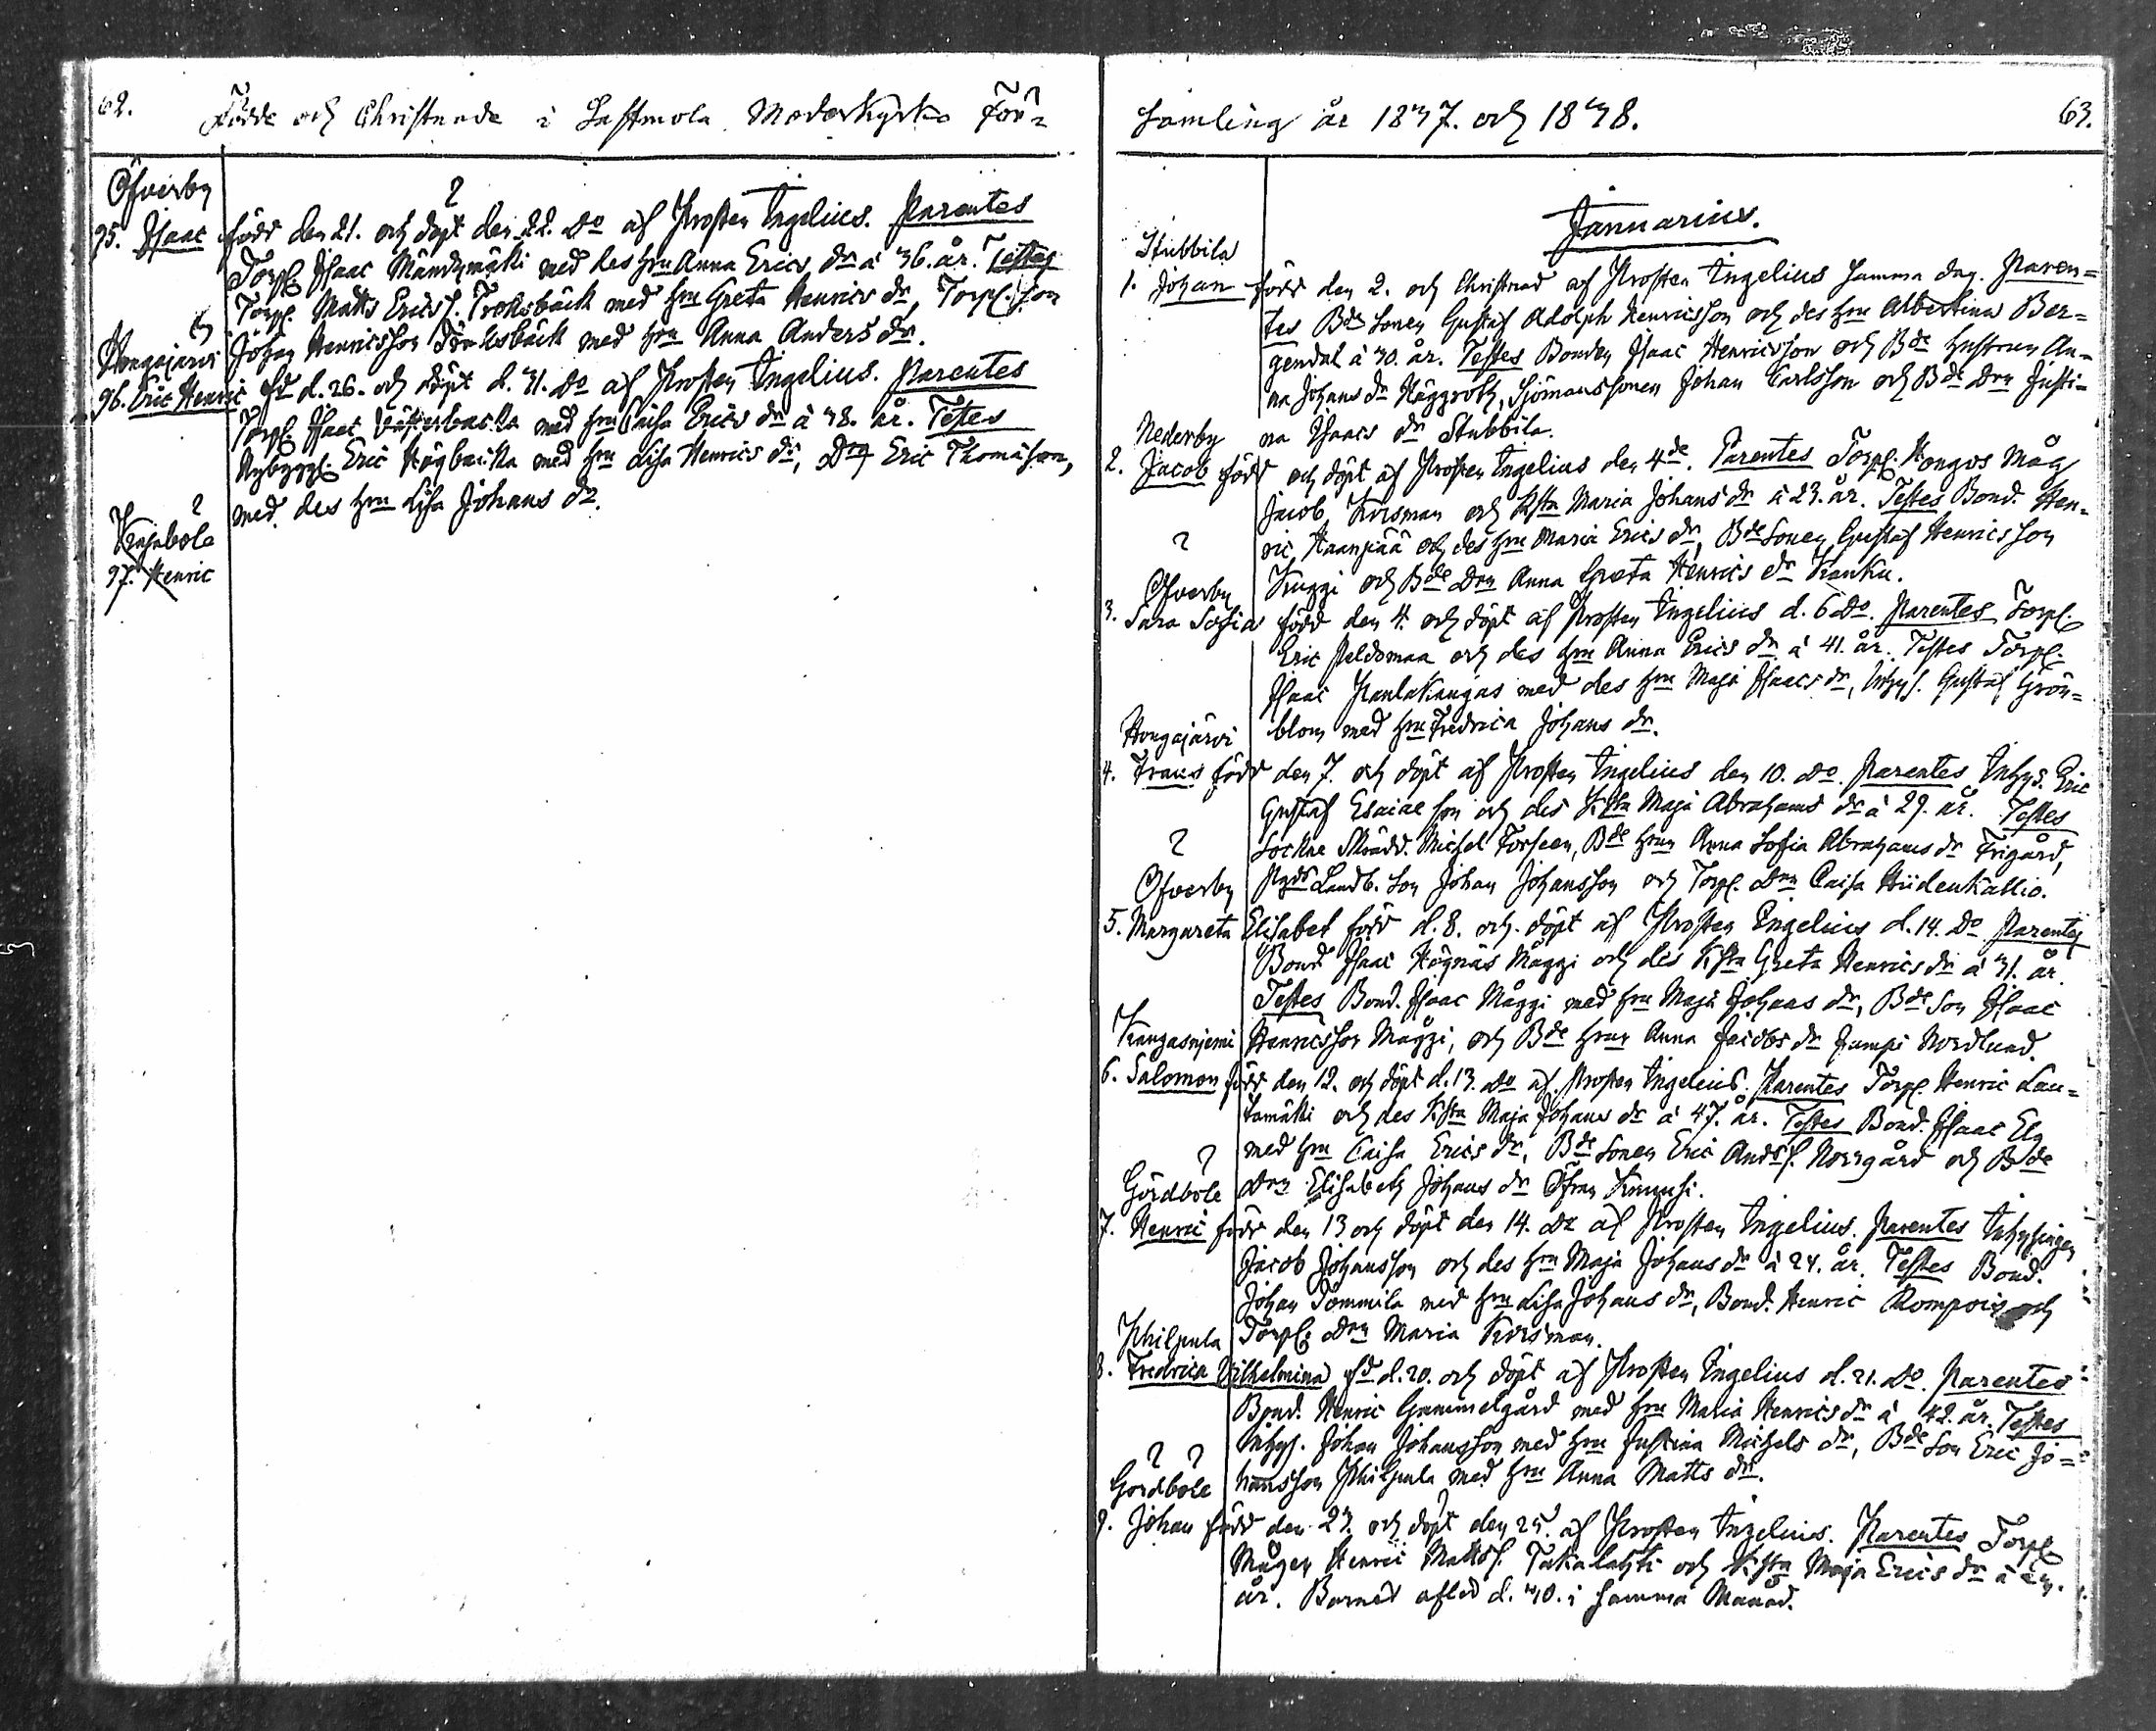 62. Födde och Christnade i Lasstmola Moderkyrko För=
Öfverby
95. Isaac född den 21. och döpt den 22. do af Prosten Ingelius. Parentes
Torp. Isaac Mändymäki med des hru Anna Erics dr à 36. år. Testes
Torp. Matts Ericss. Trolsbäck med hru Greta Henrics dr, Torp. son
Johan Henricsson med hru Anna Anders dr.
Hongajärvi
96. Eric Henric fd d. 26. och döpt d. 31. do af Prosten Ingelius. Parentes
Torp. Isaac Västerbacka med hru Caisa Erics dr à 38. år. Testes
Nybygg. Eric Högbacka med hru Lisa Henrics dr, Eric Thomasson,
med des hru Lisa Johans dr.
Krajabole
97. Henric
samling år 1837. och 1838. 63.
Januarius.
Stubbila
1. Johan född den 2. och Christnad af Prosten Ingelius samma dag. Paren=
tes Bde Sonen Gustaf Adolph Henricsson och des hru Albertina Ber=
gendal à 30. år. Testes Bonden Isaac Henricsson och Bde hustrun An=
na Johans dr Häggroth, Sjömanssonen Johan Carlsson och Bde Drn Justi=
na Isaacs dr Stubbila.
Nederby
2. Jacob född och döpt af Prosten Ingelius den 4de. Parentes Torp. Hongos Måg
Jacob Krisman och Hsta Maria Johans dr à 23. år. Testes Bond. Hen=
ric Haanpää och des hru Maria Erics dr, Bde Sonen Gustaf Henricsson
Kuggi och Bde Drn Anna Greta Henrics dr Kranku.
Öfverby
3. Sara Sofia född den 4. och döpt af Prosten Ingelius d. 6 do. Parentes Torp.
Eric Peldomaa och des hru Anna Erics dr à 41. år. Testes Torp.
Isaac Rantakangas med des hru Maja Isaacs dr, Inhys. Gustaf Grön=
blom med hru Fredrica Johans dr.
Hongajärvi
4. Frans född den 7. och döpt af Prosten Ingelius den 10. do. Parentes Inhys. Eric
Gustaf Esaiae son och des Hsta Maja Abrahams dr à 29. år. Testes
Sockne Skrädd. Michel Forseen, Bde hrun Anna Sofia Abrahams dr Frigård,
Landb. son Johan Johansson och Torp. Drn Caisa Hiidenkallio.
Öfverby
5. Margareta Elisabet född d. 8. och döpt af Prosten Ingelius d. 14. do Parentes
Bond Isaac Högnäs Måggi och des Hsta Greta Henrics dr à 31. år
Testes Bond. Isaac Måggi med hru Maja Johans dr, Bde son Isaac
Henricsson Måggi, och Bde hrun Anna Jacobs dr Jumpi Nordlund.
Krangasnjemi
6. Salomon född den 12. och döpt d. 13. do af Prosten Ingelius. Parentes Torp. Henric Lau=
tamäki och des Hsta Maja Johans dr à 47. år. Testes Bond. Isaac Elg
med hru Caisa Erics dr, Bde Sonen Eric Andss. Norrgård och Bde
Drn Elisabeth Johans dr Öfran Kruusi.
Gördbole
7. Henric född den 13 och döpt den 14. do af Prosten Ingelius. Parentes Inhysingen
Jacob Johansson och des hru Maja Johans dr à 24. år. Testes Bond.
Johan Tommila med hru Lisa Johans dr, Bond. Henric Rompois och
Torp. Drn Maria Krisman.
Philpula
8. Fredrica Wilhelmina fd d. 20. och döpt af Prosten Ingelius d. 21. do. Parentes
Bond. Henric Gammelgård med hru Maria Henrics dr à 42. år. Testes
Inhys. Johan Johansson med hru Justina Michels dr, Bde Son Eric Jo=
hansson Philpula med hru Anna Matts dr.
Gördbole
9. Johan född den 23. och döpt den 25. af Prosten Ingelius. Parentes Torp
Mågen Henric Mattss. Takalahti och Hsta Maja Erics dr à
år. Barnet afled d. 30. i samma Månad.